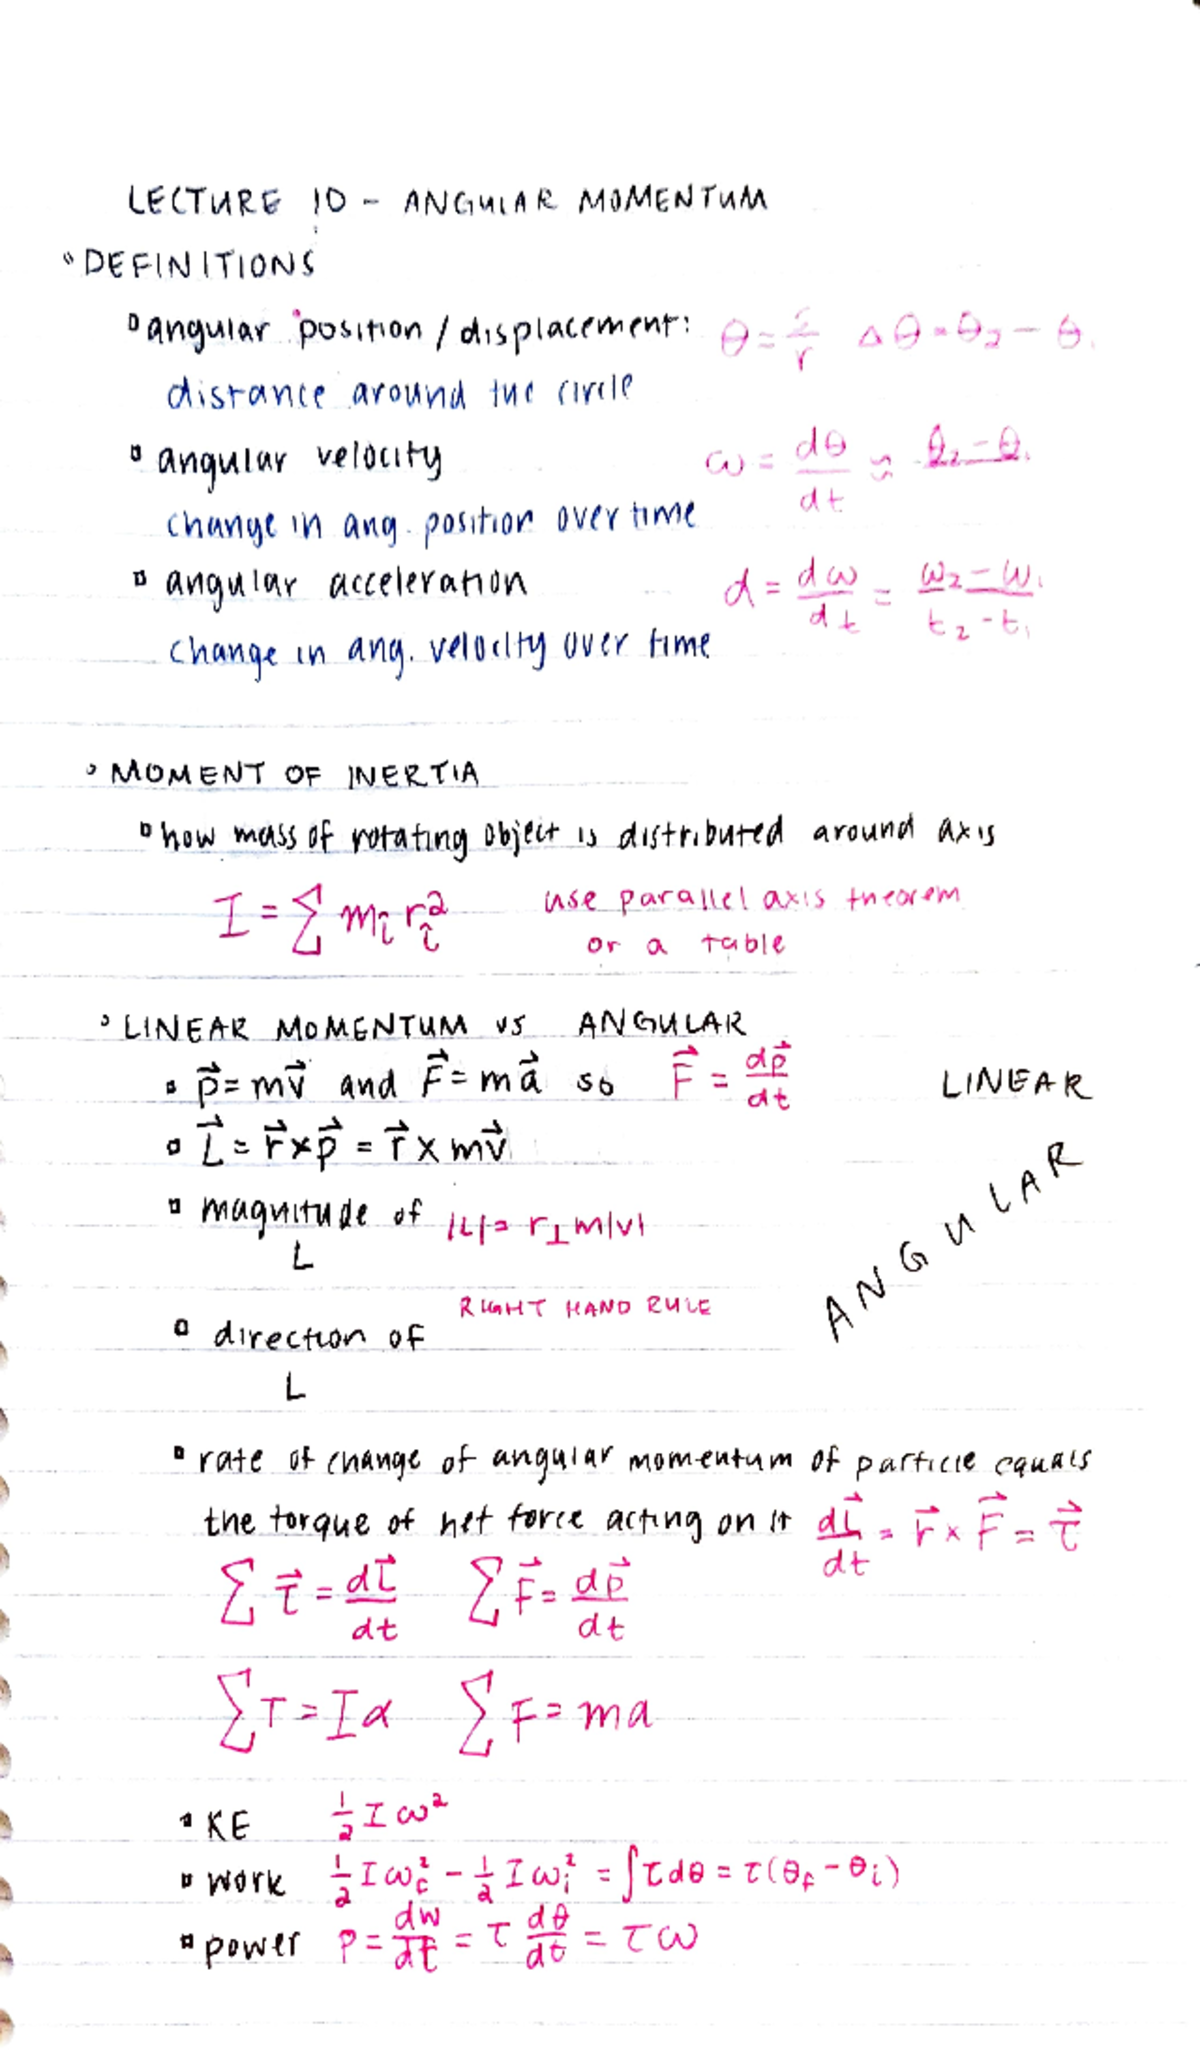 LECTURE 10 - ANGULAR MOMENTUM
DEFINITIONS
angular position / displacement: θ = s/r Δθ = θ₂ - θ₁
distance around the circle
angular velocity ω = dθ/dt ≈ θ₂ - θ₁
change in ang. position over time
angular acceleration α = dω/dt = ω₂ - ω₁ / t₂ - t₁
change in ang. velocity over time
MOMENT OF INERTIA
how mass of rotating object is distributed around axis
I = ∑ mᵢ rᵢ² use parallel axis theorem
or a table
LINEAR MOMENTUM vs ANGULAR
p⃗ = mv⃗ and F⃗ = ma⃗ so F⃗ = dp⃗/dt LINEAR
L⃗ = r⃗ x p⃗ = r⃗ x mv⃗
ANGULAR
magnitude of |L| = r⊥m|v|
L
RIGHT HAND RULE
direction of
L
rate of change of angular momentum of particle equals
the torque of net force acting on it dL⃗/dt = r⃗ x F⃗ = τ⃗
∑ τ⃗ = dL⃗/dt ∑ F⃗ = dp⃗/dt
∑ T = Iα ∑ F = ma
KE ½ I ω²
work ½ I ω_f² - ½ I ωᵢ² = ∫ τ dθ = τ(θ_f - θᵢ)
power P = dw/dt = τ dθ/dt = τω